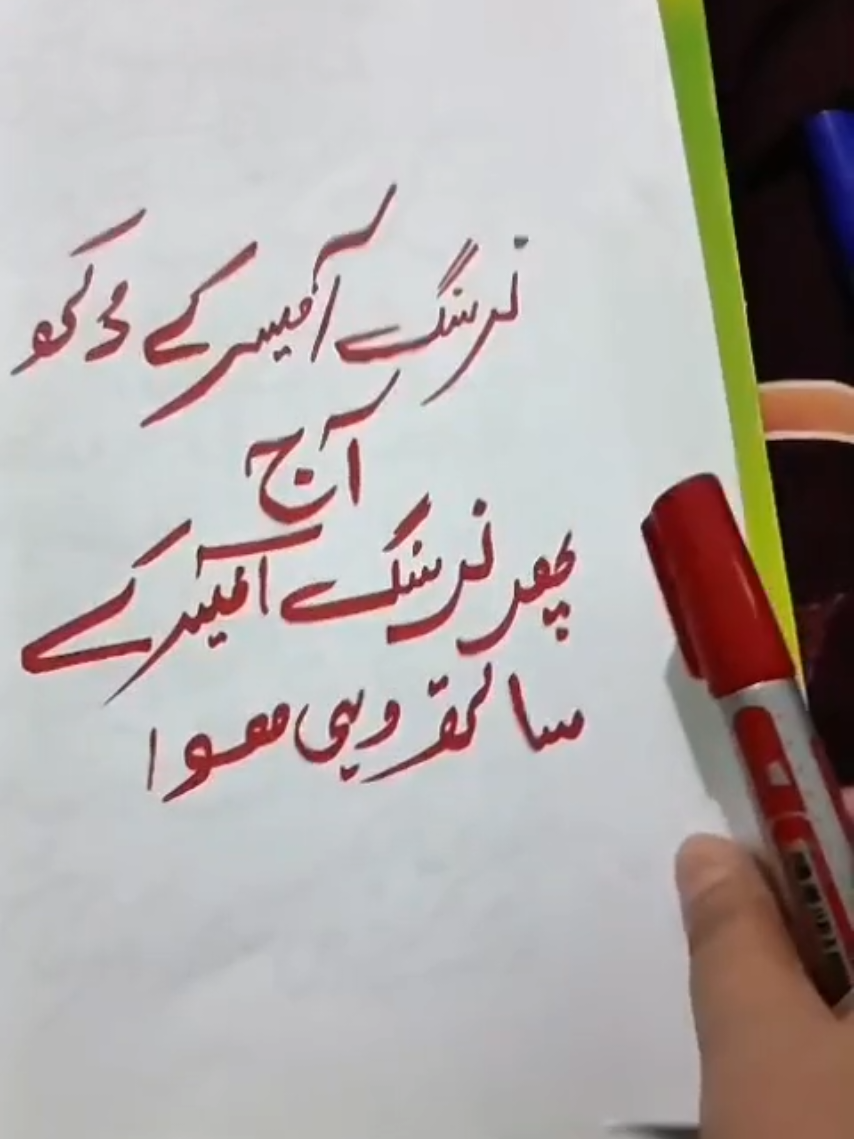 نرسنگ آفیسر کے دکھ
آج
پھر نرسنگ آفیسر کے
ساتھ وہی ہوا